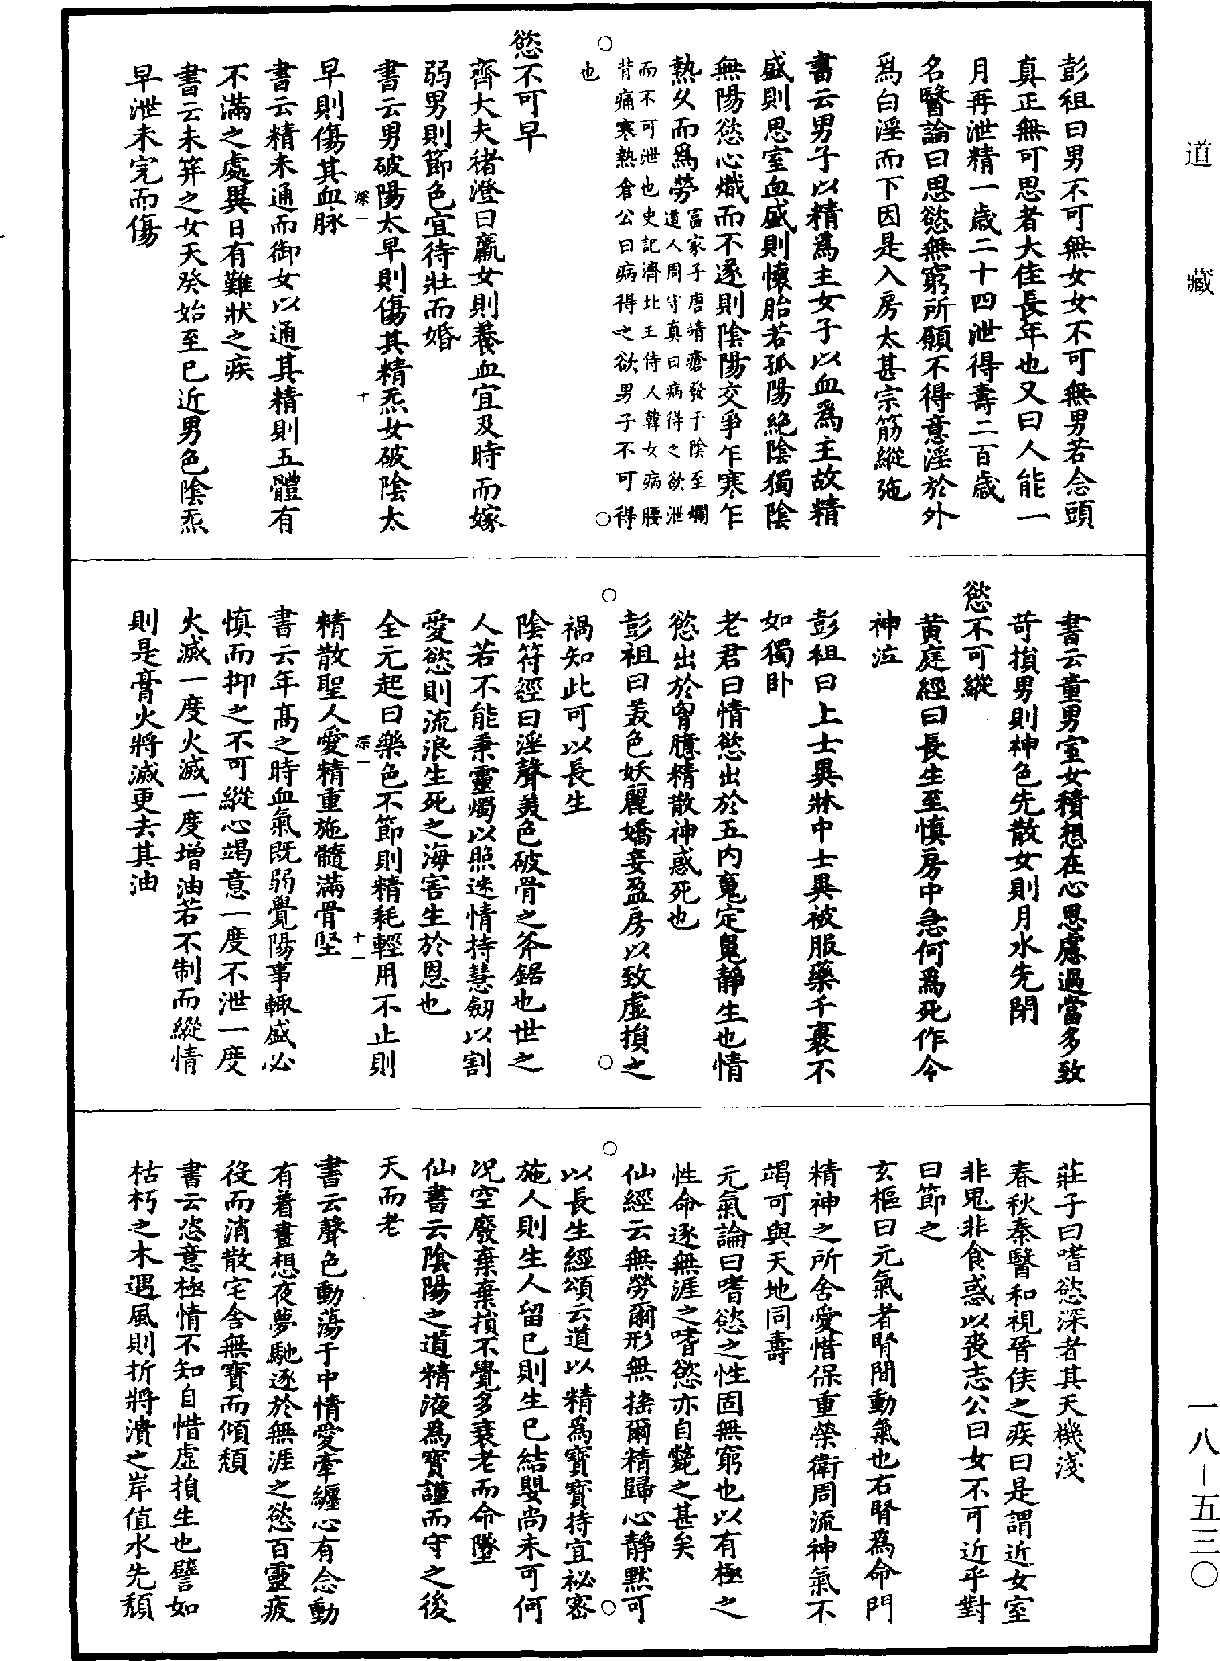 道藏
彭祖曰男不可無女女不可無男若念頭
真正無可思者大佳長年也又曰人能一
月再泄精一歲二十四泄得壽二百歲
名醫論曰思慾無窮所願不得意淫於外
爲白淫而下因是入房太甚宗筋縱弛
書云男子以精爲主女子以血爲主故精
盛則思室血盛則懷胎若孤陽絶陰獨陰
無陽慾心熾而不遂則陰陽交爭乍寒乍
熱久而爲勞富家子唐靖瘡發于陰至爛
道人周守真曰病得之欲泄
而不可泄也史記濟北王侍人韓女病腰
背痛寒熱倉公曰病得之欲男子不可得
也
慾不可早
齊大夫褚澄曰羸女則養血宜及時而嫁
弱男則節色宜待壯而婚
書云男破陽太早則傷其精炁女破陰太
深一 十
早則傷其血脉
書云精未通而御女以通其精則五體有
不滿之處異日有難狀之疾
書云未筓之女天癸始至已近男色陰炁
早泄未完而傷
書云童男室女積想在心思慮過當多致
苛損男則神色先散女則月水先閉
慾不可縱
黃庭經曰長生至慎房中急何爲死作令
神泣
彭祖曰上士異牀中士異被服藥千裹不
如獨卧
老君曰情慾出於五内䰟定䰟靜生也情
慾出於胷臆精散神惑死也
彭祖曰羙色妖麗嬌妾盈房以致虛損之
禍知此可以長生
陰符經曰淫聲羙色破骨之斧鋸也世之
人若不能秉靈燭以照迷情持慧劒以割
愛慾則流浪生死之海害生於恩也
全元起曰樂色不節則精耗輕用不止則
深一 十一
精散聖人愛精重施髓滿骨堅
書云年高之時血氣既弱覺陽事輒盛必
慎而抑之不可縱心竭意一度不泄一度
火滅一度火滅一度增油若不制而縱情
則是膏火將滅更去其油
莊子曰嗜慾深者其天機淺
春秋秦醫和視晉侯之疾曰是謂近女室
非鬼非食惑以喪志公曰女不可近乎對
曰節之
玄樞曰元氣者腎間動氣也右腎爲命門
精神之所舍愛惜保重榮衛周流神氣不
竭可與天地同壽
元氣論曰嗜慾之性固無窮也以有極之
性命逐無涯之嗜慾亦自斃之甚矣
仙經云無勞爾形無搖爾精歸心靜黙可
以長生經頌云道以精爲寶寶持宜祕密
施人則生人留己則生己結嬰尚未可何
况空廢棄棄損不覺多衰老而命墜
仙書云陰陽之道精液爲寶謹而守之後
天而老
書云聲色動蕩于中情愛牽纏心有念動
有着晝想夜夢馳逐於無涯之慾百靈疲
役而消散宅舍無寶而傾頹
書云恣意極情不知自惜虛損生也譬如
枯朽之木遇風則折將潰之岸值水先頹
一八－五三〇